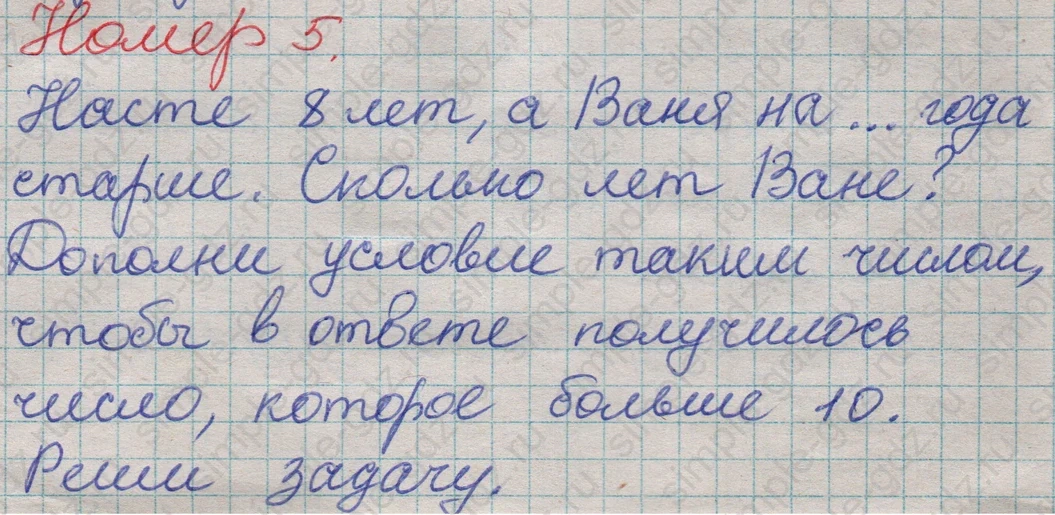 Номер 5.
Насте 8 лет, а Ваня на ... года
старше. Сколько лет Ване?
Дополни условие таким числом,
чтобы в ответе получилось
число, которое больше 10.
Реши задачу.